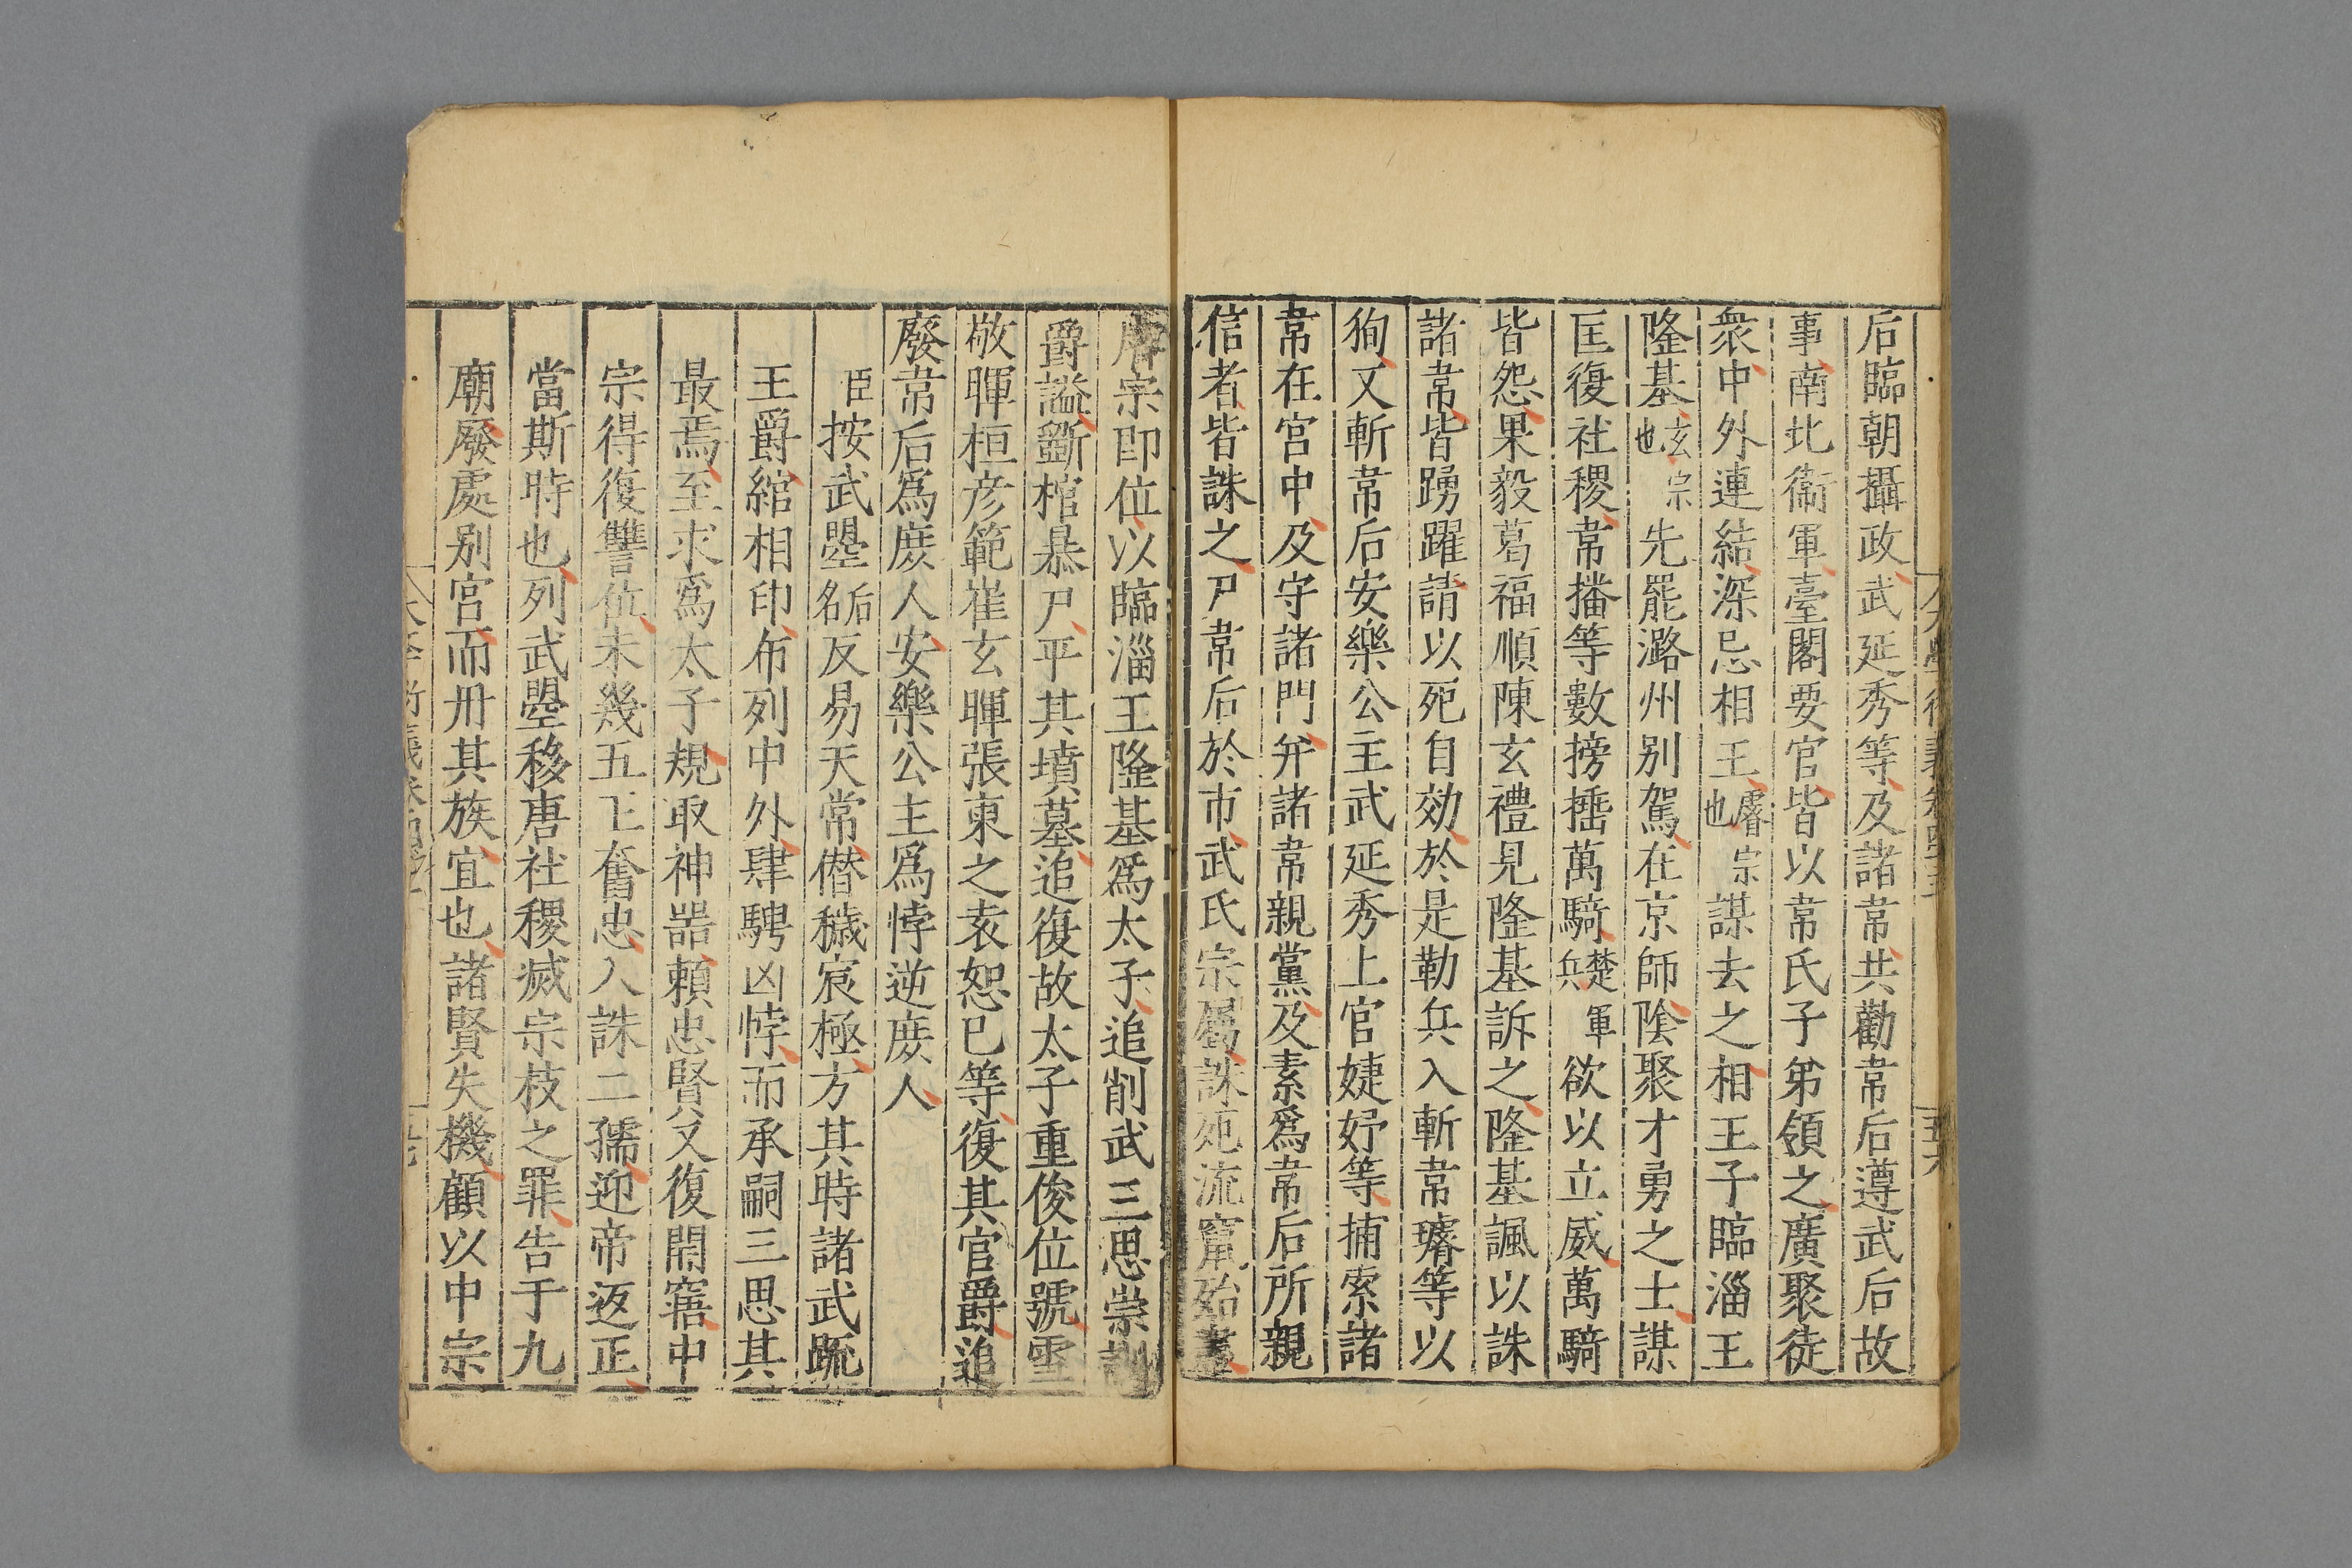 后臨朝攝政武延秀等及諸韋共勸韋后遵武后故
事南北衞軍臺閣要官皆以韋氏子弟領之廣聚徒
衆中外連結深忌相王睿宗也謀去之相王子臨淄王
隆基玄宗也先罷潞州别駕在京師陰聚才勇之士謀
匡復社稷韋播等數搒捶萬騎楚軍兵欲以立威萬騎
皆怨果毅葛福順陳玄禮見隆基訴之隆基諷以誅
諸韋皆踴躍請以死自効於是勒兵入斬韋璿等以
狥又斬韋后安樂公主武延秀上官婕妤等捕索諸
韋在宫中及守諸門并諸韋親黨及素爲韋后所親
信者皆誅之尸韋后於市武氏宗屬誅死流竄殆盡
睿宗即位以臨淄王隆基爲太子追削武三思崇訓
爵謚斵棺暴尸平其墳墓追復故太子重俊位號雪
敬暉桓彦範崔玄暉張柬之袁恕已等復其官爵追
廢韋后爲庶人安樂公主爲悖逆庶人
臣按武曌名后反易天常僭穢宸極方其時諸武䟽
王爵綰相印布列中外肆騁凶悖而承嗣三思其
最焉至求爲太子規取神器頼忠賢又復開寤中
宗得復讐位未幾五王奮忠入誅二孺迎帝返正
當斯時也列武曌移唐社稷滅宗枝之罪告于九
廟廢處别宫而毌其族宜也諸賢失機顧以中宗